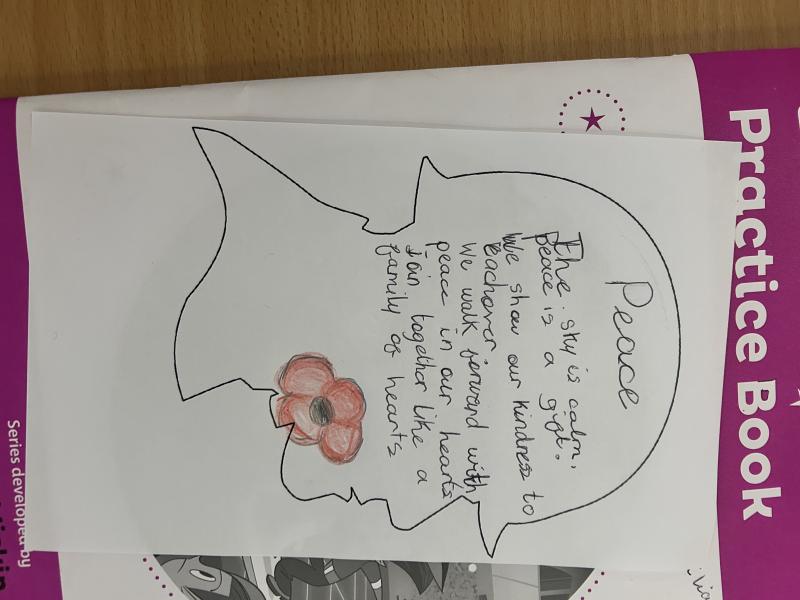 Practice Book
Peace
The sky is calm,
peace is a gift.
We show our kindness to
eachover
We walk forward with
peace in our hearts
Join together like a
family of hearts
Series developed by